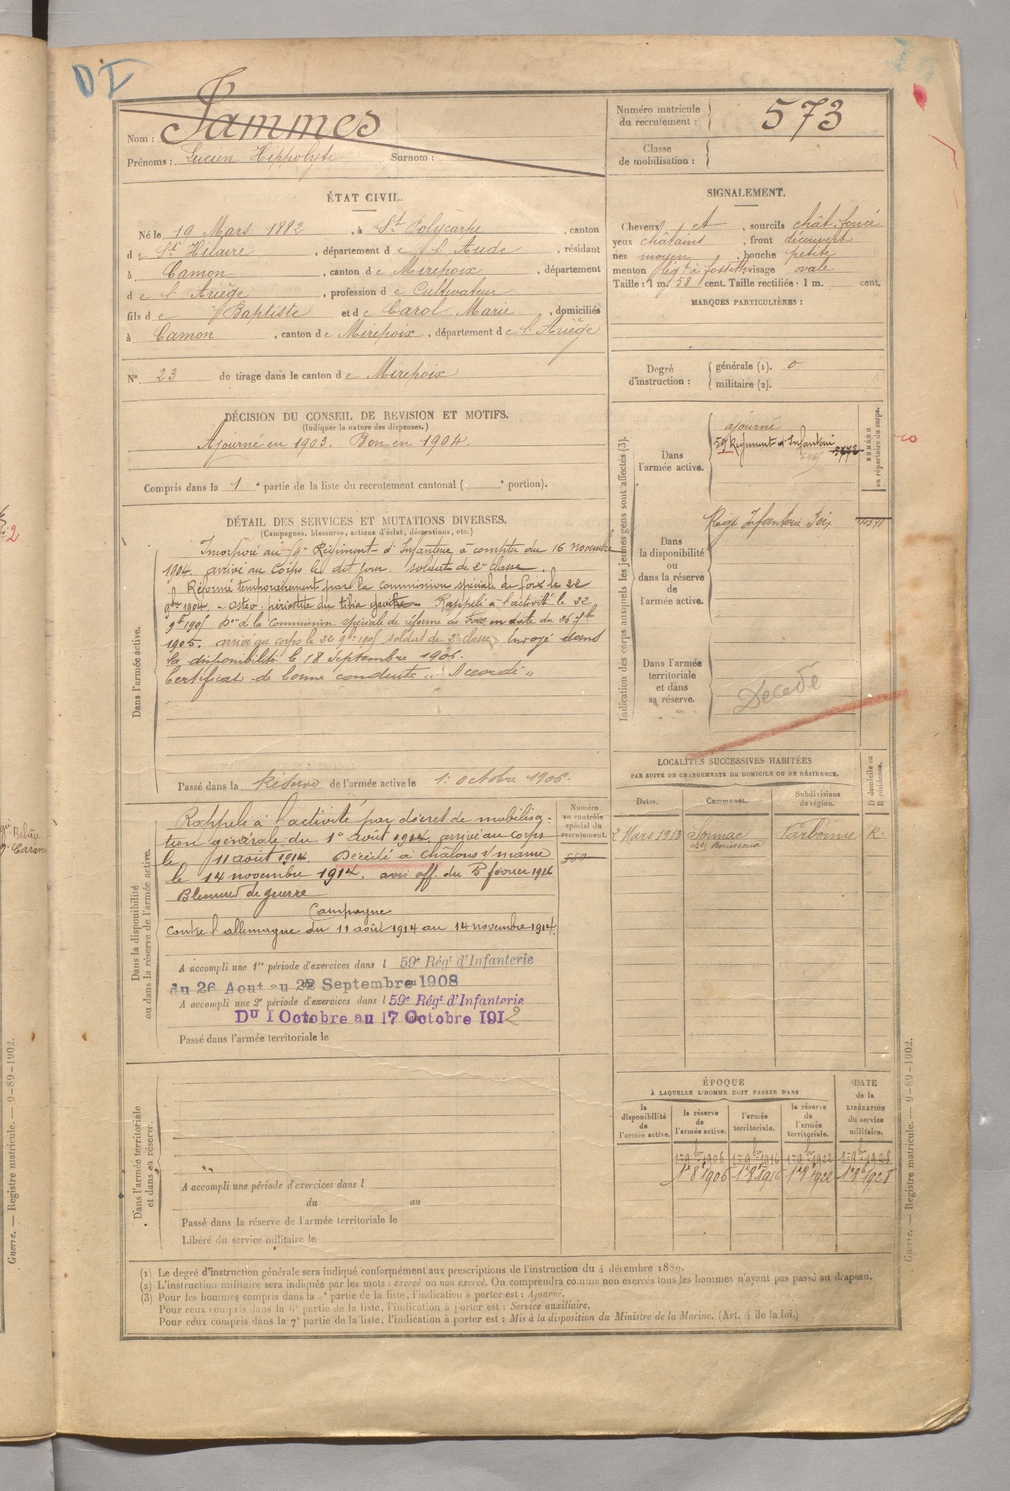 DI
Nom : Jammes
Prénoms : Lucien Hippolyte Surnom :
Numéro matricule du recrutement : 573
Classe de mobilisation :
ÉTAT CIVIL.
Né le 19 Mars 1882, à St Polycarpe, canton
de St Hilaire, département de l'Aude, résidant
à Camon, canton de Mirepoix, département
de l'Ariège, profession de Cultivateur
fils de Baptiste et de Carol Marie, domiciliés
à Camon, canton de Mirepoix, département de l'Ariège
N° 23 de tirage dans le canton de Mirepoix
SIGNALEMENT.
Cheveux et, sourcils chât. foncé
yeux châtains, front découvert
nez moyen, bouche petite
menton à fossette visage ovale
Taille : 1 m. 58 cent. Taille rectifiée : 1 m. cent.
MARQUES PARTICULIÈRES :
Degré d'instruction : générale (1). 0
militaire (2).
DÉCISION DU CONSEIL DE REVISION ET MOTIFS.
(Indiquer la nature des dispenses.)
Ajourné en 1903. Bon en 1904.
Compris dans la 1e partie de la liste du recrutement cantonal ( e portion).
DÉTAIL DES SERVICES ET MUTATIONS DIVERSES.
(Campagnes, blessures, actions d'éclat, décorations, etc.)
Dans l'armée active.
Incorporé au 59e Régiment d'Infanterie à compter du 16 novembre
1904. arrivé au Corps le dit jour. soldat de 2e classe.
Réformé temporairement par la commission spéciale de Foix le 22
9bre 1904. Ostéo-périostite du tibia gauche. Rappelé à l'activité le
Don de la Commission spéciale de réforme de Foix en date du
1905. arrivé au corps le soldat de 2e classe. Envoyé dans
la disponibilité le 18 Septembre 1906.
Certificat de bonne conduite " Accordé "
Passé dans la Réserve de l'armée active le 1er octobre 1906.
Indication des corps auxquels les jeunes gens sont affectés (3).
NUMÉRO au répertoire du corps.
Dans l'armée active.
ajourné
59 Régiment d'Infanterie
Dans la disponibilité ou dans la réserve de l'armée active.
Régt Infanterie Foix
Dans l'armée territoriale et dans sa réserve.
Décédé
Dans la disponibilité ou dans la réserve de l'armée active.
Numéro au contrôle spécial du recrutement.
Rappelé à l'activité par décret de mobilisa-
tion générale du 1er août 1914. arrivé au corps
le 11 août 1914. Décédé à Châlons s/ marne
le 14 novembre 1914. avis off. du février 1916
Blessures de guerre
Campagne
contre l'allemagne du 11 août 1914 au 14 novembre 1914.
A accompli une 1re période d'exercices dans l 59e Régt d'Infanterie
du 26 Aout au 22 Septembre 1908
A accompli une 2e période d'exercices dans l 59e Régt d'Infanterie
Du 1 Octobre au 17 Octobre 1912
Passé dans l'armée territoriale le
LOCALITÉS SUCCESSIVES HABITÉES
PAR SUITE DE CHANGEMENTS DE DOMICILE OU DE RÉSIDENCE.
Dates. Communes. Subdivisions de région. D domicile ou R résidence.
Mars 1913 Narbonne R.
Dans l'armée territoriale et dans sa réserve.
A accompli une période d'exercices dans l
du au
Passé dans la réserve de l'armée territoriale le
Libéré du service militaire le
ÉPOQUE
À LAQUELLE L'HOMME DOIT PASSER DANS
la disponibilité de l'armée active. la réserve de l'armée active. l'armée territoriale. la réserve de l'armée territoriale.
DATE de la LIBÉRATION du service militaire.
1906 1916 1922 1928
(1) Le degré d'instruction générale sera indiqué conformément aux prescriptions de l'instruction du 4 décembre 1889.
(2) L'instruction militaire sera indiquée par les mots : exercé ou non exercé. On comprendra comme non exercés tous les hommes n'ayant pas passé au drapeau.
(3) Pour les hommes compris dans la e partie de la liste, l'indication à porter est : Ajourné.
Pour ceux compris dans la 6e partie de la liste, l'indication à porter est : Service auxiliaire.
Pour ceux compris dans la 7e partie de la liste, l'indication à porter est : Mis à la disposition du Ministre de la Marine. (Art. 4 de la loi.)
Guerre. — Registre matricule. — 9-89-1902.
Guerre. — Registre matricule. — 9-89-1902.